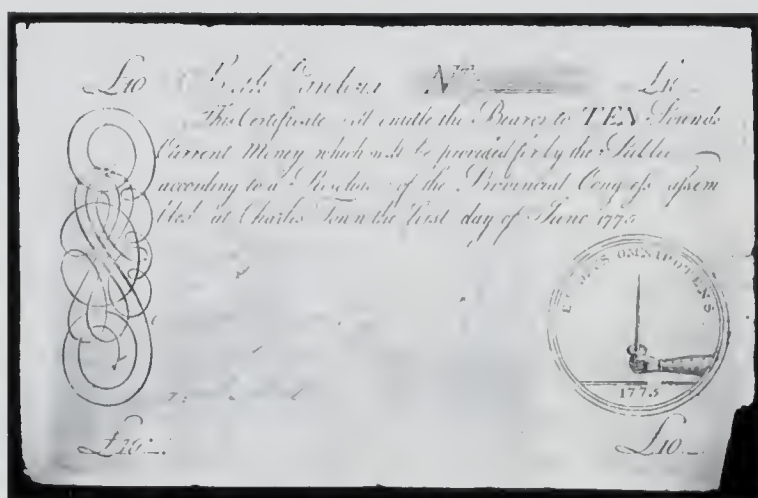 £10 South Carolina No. £10
This Certificate will entitle the Bearer to TEN Pounds
Current Money which will be provided for by the Public
according to a Resolve of the Provincial Congress assem
bled at Charles Town the first day of June 1775
ET DEUS OMNIPOTENS
1775
£10 £10